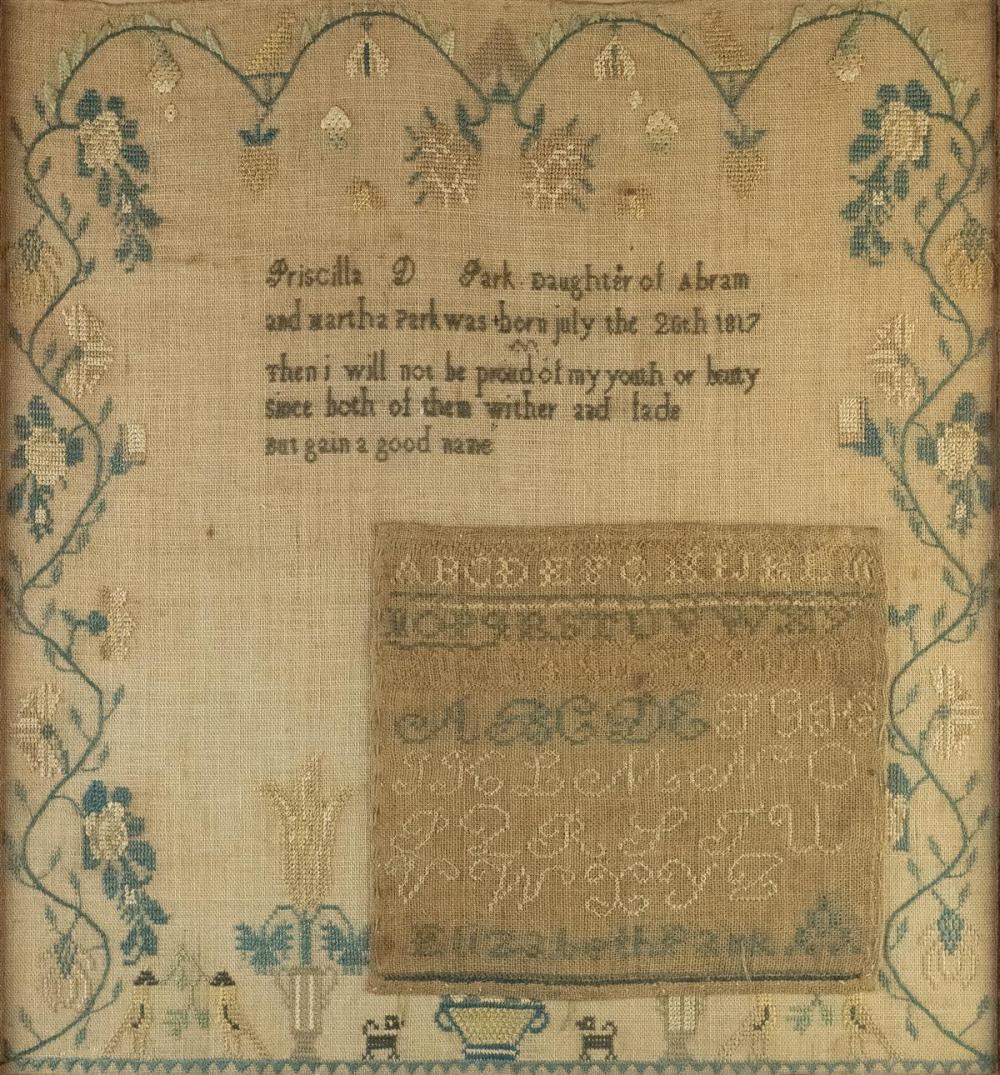 Priscilla D Park Daughter of Abram
and Martha Park was born july the 26th 1817
Then i will not be proud of my youth or beuty
since both of them wither and fade
But gain a good name
ABCDEFGHIJKLM
NOPQRSTUVWXYZ
ABCDEFGH
IKLMNO
PQRSTU
VWXYZ
Elizabeth Park